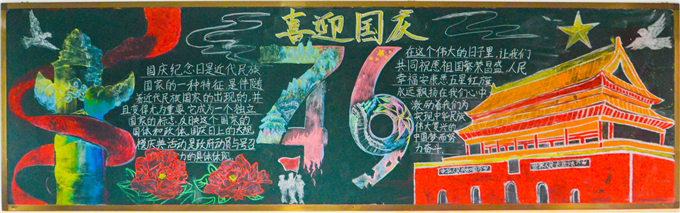 喜迎国庆
国庆纪念日是近代民族
国家的一种特征,是伴随
着近代民族国家的出现的,并
且变得尤为重要。它成为一个独立
国家的标志,反映这个国家的
国体和政体。国庆日上的大规
模庆典活动是政府动员与号召
力的具体体现
76
在这个伟大的日子里,让我们
共同祝愿祖国繁荣昌盛,人民
幸福安康愿五星红旗
永远飘扬在我们心中
激励着我们为
实现中华民族
伟大复兴的
中国梦而努
力奋斗
中华人民共和国万岁
世界人民大团结万岁